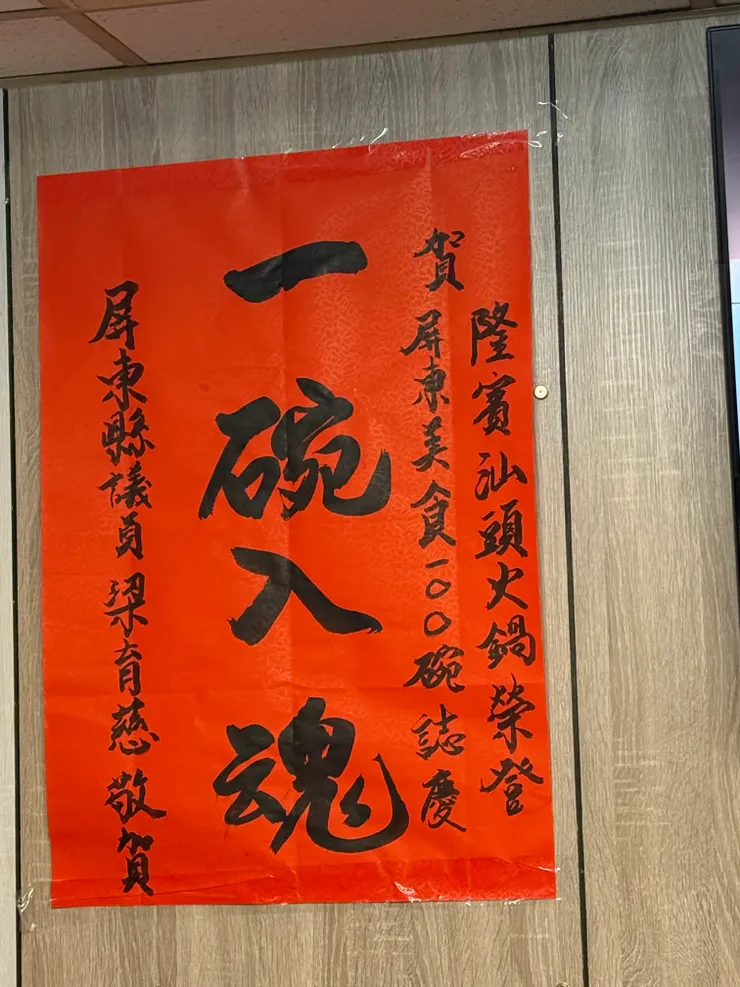 賀
隆賓汕頭火鍋榮登
屏東美食一〇〇碗誌慶
一碗入魂
屏東縣議員梁育慈敬賀